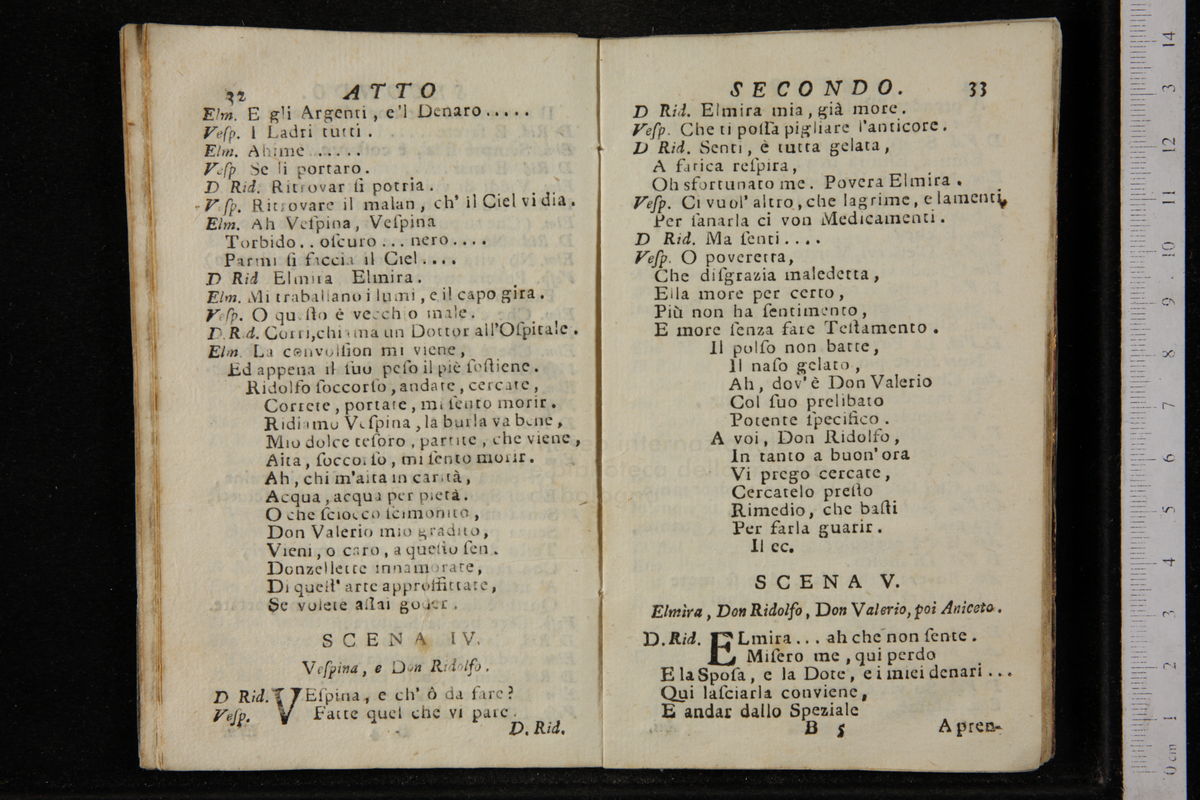 32 ATTO
Elm. E gli Argenti, e'l Denaro.....
Veſp. I Ladri tutti.
Elm. Ahime......
Veſp Se li portaro.
D Rid. Ritrovar ſi potria.
Veſp. Ritrovare il malan, ch' il Ciel vi dia.
Elm. Ah Veſpina, Veſpina
Torbido.. oſcuro... nero....
Parmi ſi faccia il Ciel....
D Rid Elmira Elmira.
Elm. Mi traballano i lumi, e il capo gira.
Veſp. O queſto è vecchio male.
D. Rid. Corri, chiama un Dottor all'Oſpitale.
Elm. La convulſion mi viene,
Ed appena il ſuo peſo il piè ſoſtiene.
Ridolfo ſoccorſo, andate, cercate,
Correte, portate, mi ſento morir.
Ridiamo Veſpina, la burla va bene,
Mio dolce teſoro, partite, che viene,
Aita, ſoccorſo, mi ſento morir.
Ah, chi m'aita in carità,
Acqua, acqua per pietà.
O che ſciocco ſcimonito,
Don Valerio mio gradito,
Vieni, o caro, a queſto ſen.
Donzellette innamorate,
Di queſt' arte approfittate,
Se volete aſſai goder.
SCENA IV.
Veſpina, e Don Ridolfo.
D Rid. VEſpina, e ch' ò da fare?
Veſp. Fatte quel che vi pare.
D. Rid.
SECONDO. 33
D Rid. Elmira mia, già more.
Veſp. Che ti poſſa pigliare l'anticore.
D Rid. Senti, è tutta gelata,
A fatica reſpira,
Oh sfortunato me. Povera Elmira.
Veſp. Ci vuol' altro, che lagrime, e lamenti,
Per ſanarla ci von Medicamenti.
D Rid. Ma ſenti....
Veſp. O poveretta,
Che diſgrazia maledetta,
Ella more per certo,
Più non ha ſentimento,
E more ſenza fare Teſtamento.
Il polſo non batte,
Il naſo gelato,
Ah, dov'è Don Valerio
Col ſuo prelibato
Potente ſpecifico.
A voi, Don Ridolfo,
In tanto a buon'ora
Vi prego cercate,
Cercatelo preſto
Rimedio, che baſti
Per farla guarir.
Il ec.
SCENA V.
Elmira, Don Ridolfo, Don Valerio, poi Aniceto.
D. Rid. ELmira... ah che non ſente.
Miſero me, qui perdo
E la Spoſa, e la Dote, e i miei denari...
Qui laſciarla conviene,
E andar dallo Speziale
B 5 A pren-